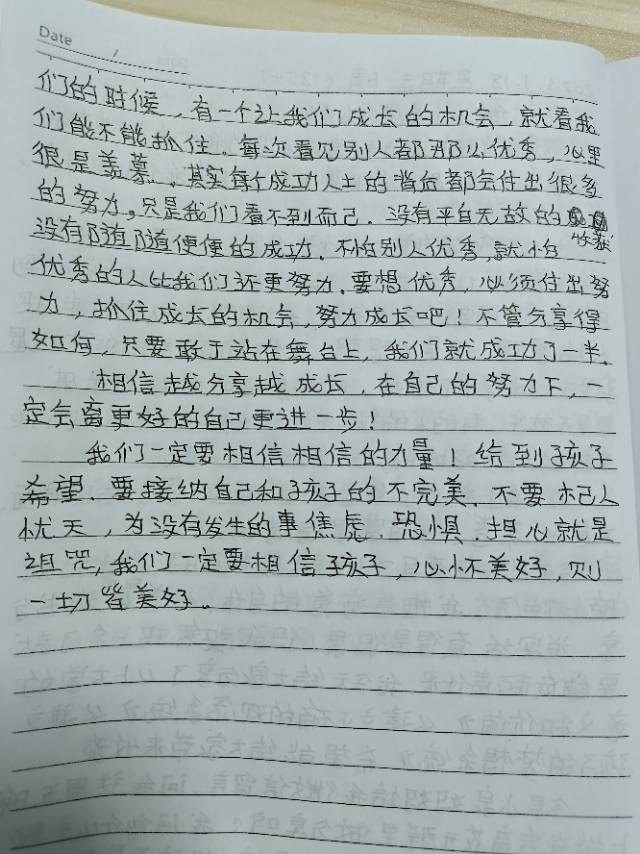 Date /
们的时候，有一个让我们成长的机会，就看我
们能不能抓住。每次看见别人都那么优秀，心里
很是羡慕，其实每个成功人士的背后都会付出很多
的努力，只是我们看不到而已。没有平白无故的
收获
没有随随便便的成功。不怕别人优秀，就怕
优秀的人比我们还更努力。要想优秀，必须付出努
力，抓住成长的机会，努力成长吧！不管分享得
如何，只要敢于站在舞台上，我们就成功了一半。
相信越分享越成长，在自己的努力下，一
定会离更好的自己更进一步！
我们一定要相信相信的力量！给到孩子
希望，要接纳自己和孩子的不完美，不要杞人
忧天，为没有发生的事焦虑，恐惧，担心就是
诅咒，我们一定要相信孩子，心怀美好，则
一切皆美好。